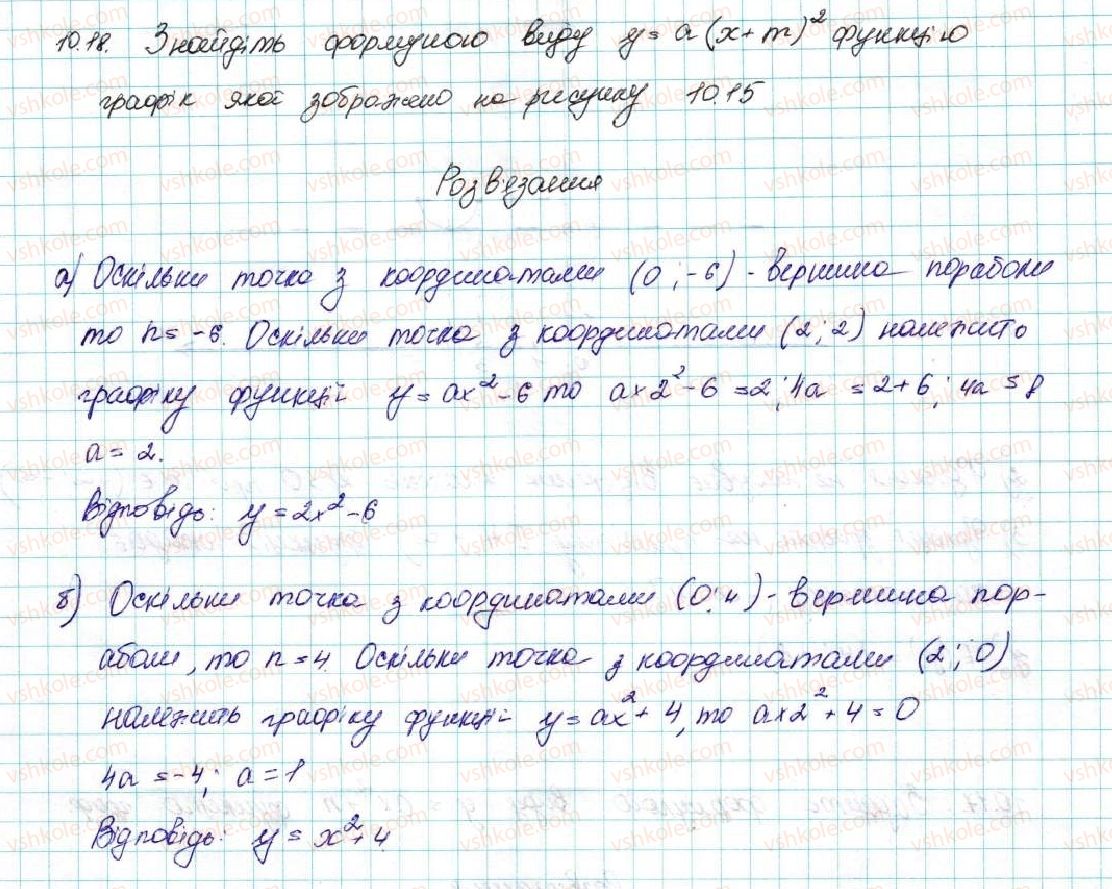 10.18. Знайдіть формулою виду y = a(x+m)² функцію
графік якої зображено на рисунку 10.15
Розв'язання
а) Оскільки точка з координатами (0 ; -6) - вершина параболи
то n = -6. Оскільки точка з координатами (2 ; 2) належить
графіку функції y = ax² - 6 то a×2² - 6 = 2 ; 4a = 2+6 ; 4a = 8
a = 2.
Відповідь: y = 2x² - 6
б) Оскільки точка з координатами (0 ; 4) - вершина пор-
аболи, то n = 4. Оскільки точка з координатами (2 ; 0)
належить графіку функції y = ax² + 4, то a×2² + 4 = 0
4a = -4 ; a = 1
Відповідь: y = x² + 4